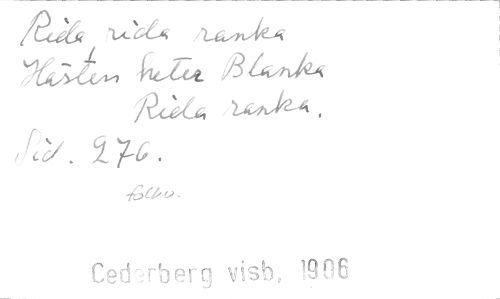 Rida, rida ranka
Hästen heter Blanka
Rida ranka.
Sid. 276.
folkv.
Cederberg visb, 1906